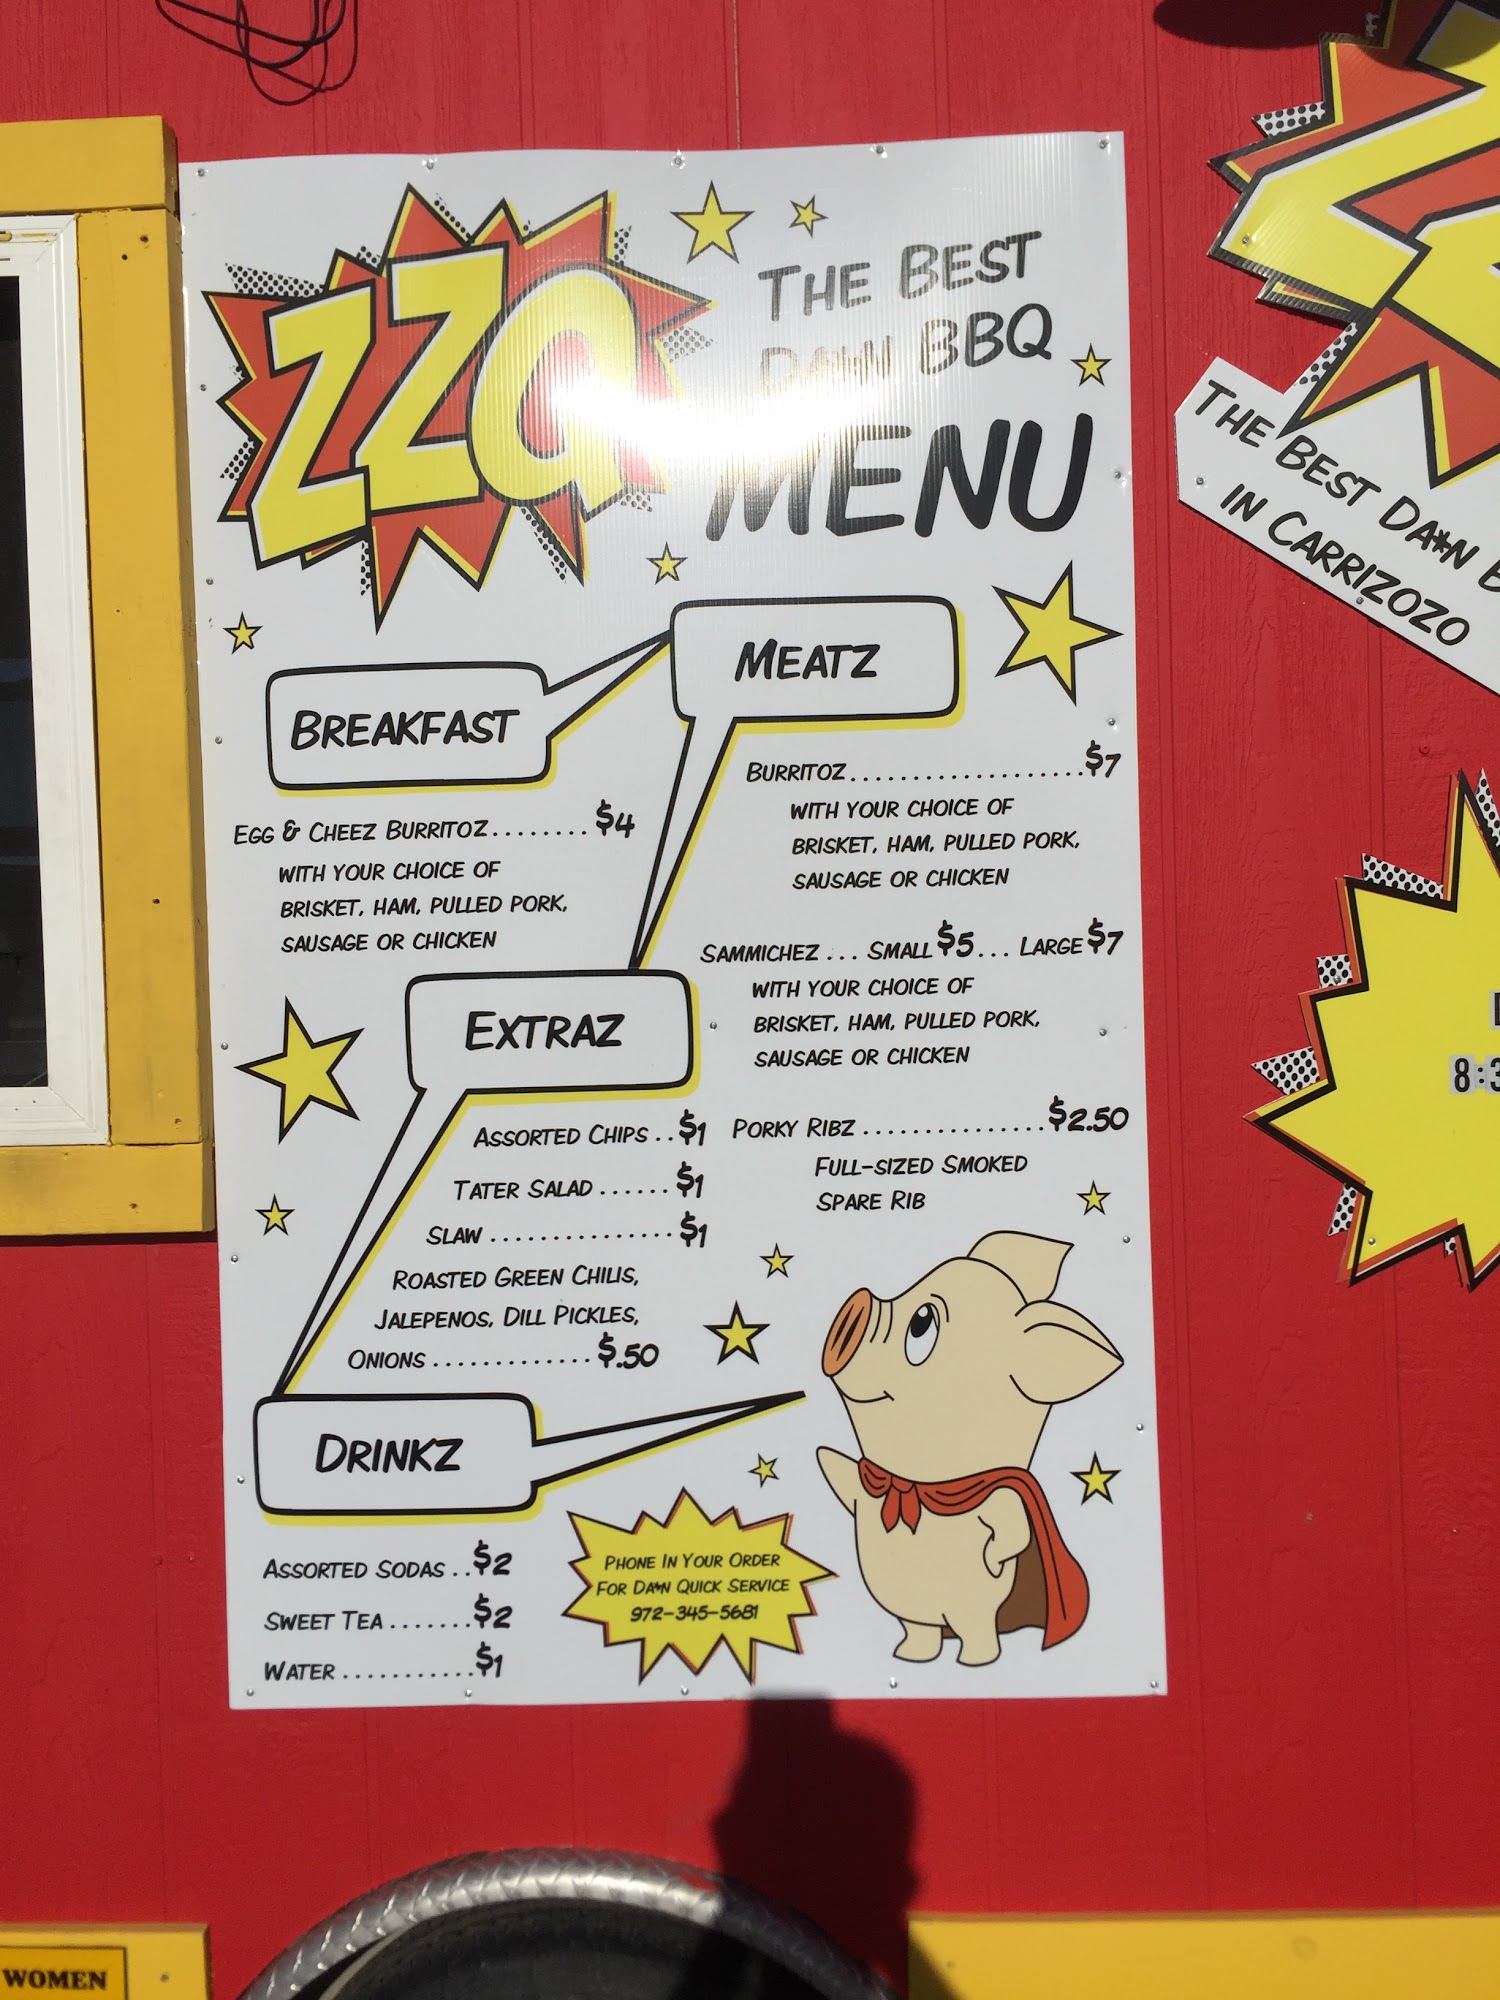 ZZQ
THE BEST
DA*N BBQ
MENU
BREAKFAST
EGG & CHEEZ BURRITOZ........$4
WITH YOUR CHOICE OF
BRISKET, HAM, PULLED PORK,
SAUSAGE OR CHICKEN
MEATZ
BURRITOZ...................$7
WITH YOUR CHOICE OF
BRISKET, HAM, PULLED PORK,
SAUSAGE OR CHICKEN
SAMMICHEZ ... SMALL $5... LARGE $7
WITH YOUR CHOICE OF
BRISKET, HAM, PULLED PORK,
SAUSAGE OR CHICKEN
PORKY RIBZ ...............$2.50
FULL-SIZED SMOKED
SPARE RIB
EXTRAZ
ASSORTED CHIPS ..$1
TATER SALAD ......$1
SLAW ...............$1
ROASTED GREEN CHILIS,
JALEPENOS, DILL PICKLES,
ONIONS .............$.50
DRINKZ
ASSORTED SODAS ..$2
SWEET TEA .......$2
WATER ...........$1
PHONE IN YOUR ORDER
FOR DA*N QUICK SERVICE
972-345-5681
THE BEST DA*N B
IN CARRIZOZO
8:3
WOMEN